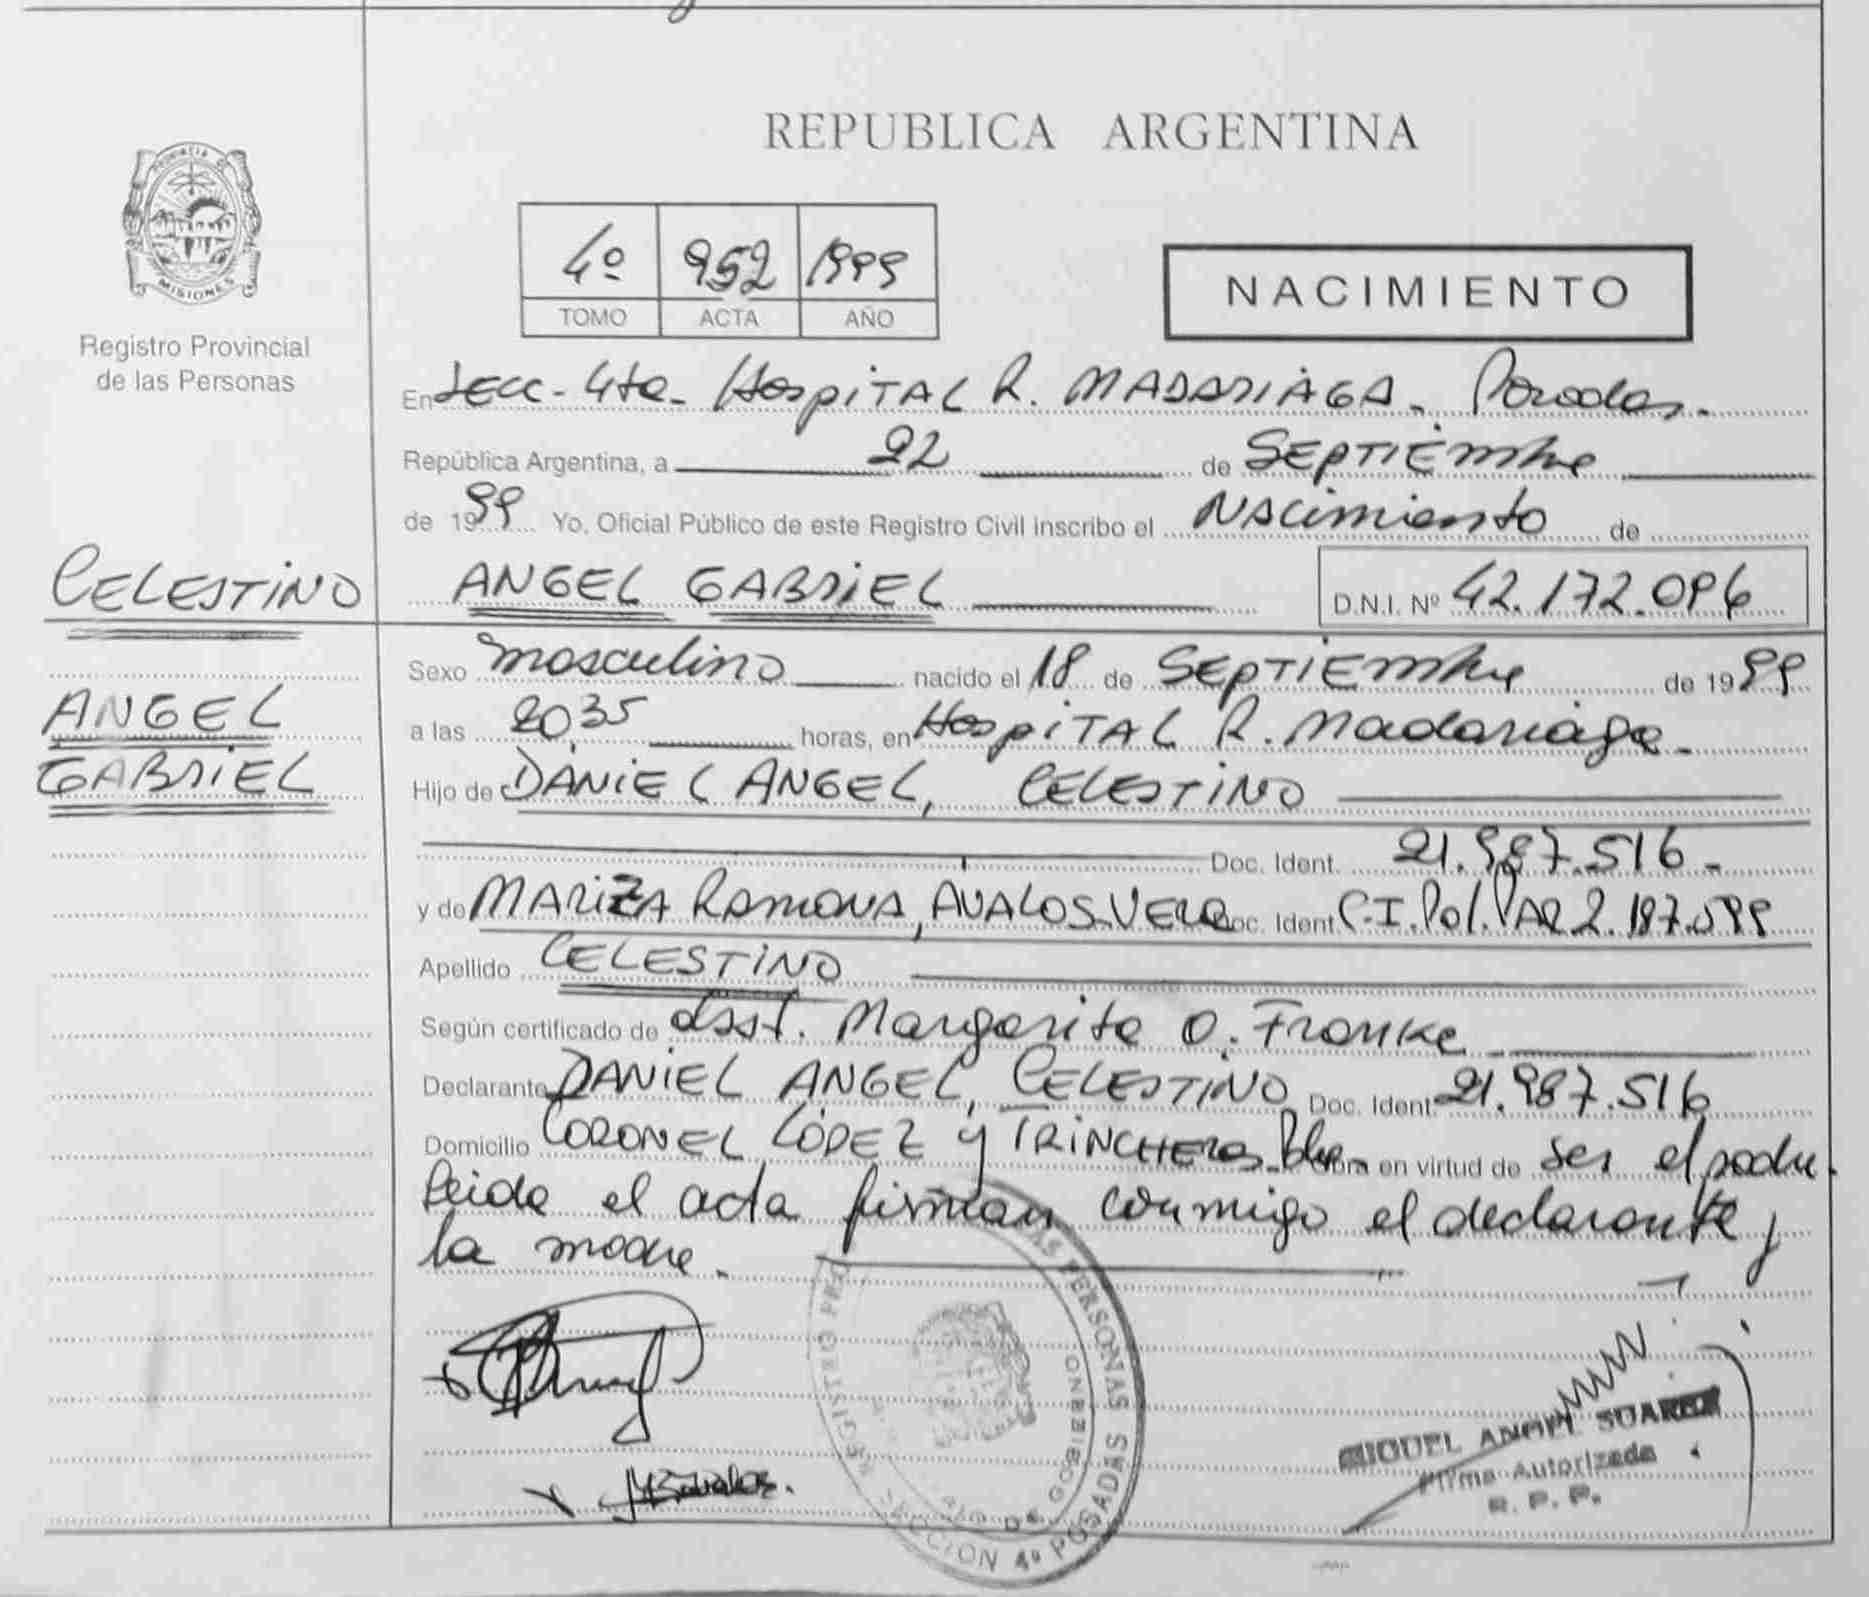 REPUBLICA ARGENTINA
PROVINCIA DE
MISIONES
Registro Provincial
de las Personas
4º 952 1999
TOMO ACTA AÑO
NACIMIENTO
En Secc - 4ta - HospiTAL R. MADARIAGA - Posadas.
República Argentina, a 22 de SEPTIEmbre
de 1999 Yo, Oficial Público de este Registro Civil inscribo el NAcimiento de
CELESTINO
ANGEL GABRIEL D.N.I. Nº 42.172.096
ANGEL
GABRIEL
Sexo masculino nacido el 18 de SEPTIEmbre de 1999
a las 20,35 horas, en HospiTAL R. Madariaga -
Hijo de DANIEL ANGEL, CELESTINO
Doc. Ident. 21.987.516 -
y de MARIZA RAMONA, AVALOS VERA Doc. Ident C.I. Pol. PAR 2.187.099
Apellido CELESTINO
Según certificado de Margarita O. Franke
Declarante DANIEL ANGEL, CELESTINO Doc. Ident 21.987.516
Domicilio CORONEL LÓPEZ y TRINCHERAS en virtud de ser el padre.
Leida el acta firman conmigo el declarante y
la madre.
REGISTRO PROV. DE LAS PERSONAS
DE GOBIERNO
SECCION 4º POSADAS
MIGUEL ANGEL SUAREZ
Firma Autorizada
R. P. P.